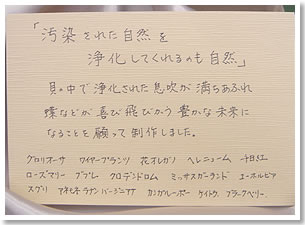 「汚染された自然を
浄化してくれるのも自然」
貝の中で浄化された息吹が満ちあふれ
蝶などが喜び飛びかう豊かな未来に
なることを願って制作しました。
グロリオーサ ワイヤープランツ 花オレガノ ヘレニューム 千日紅
ローズマリー ブプレ クロデンドロム ミッサスガーランド ユーホルビア
スプリ アネモネ ラナン バージニアア カンガルーポー ケイトウ ブラックベリー.